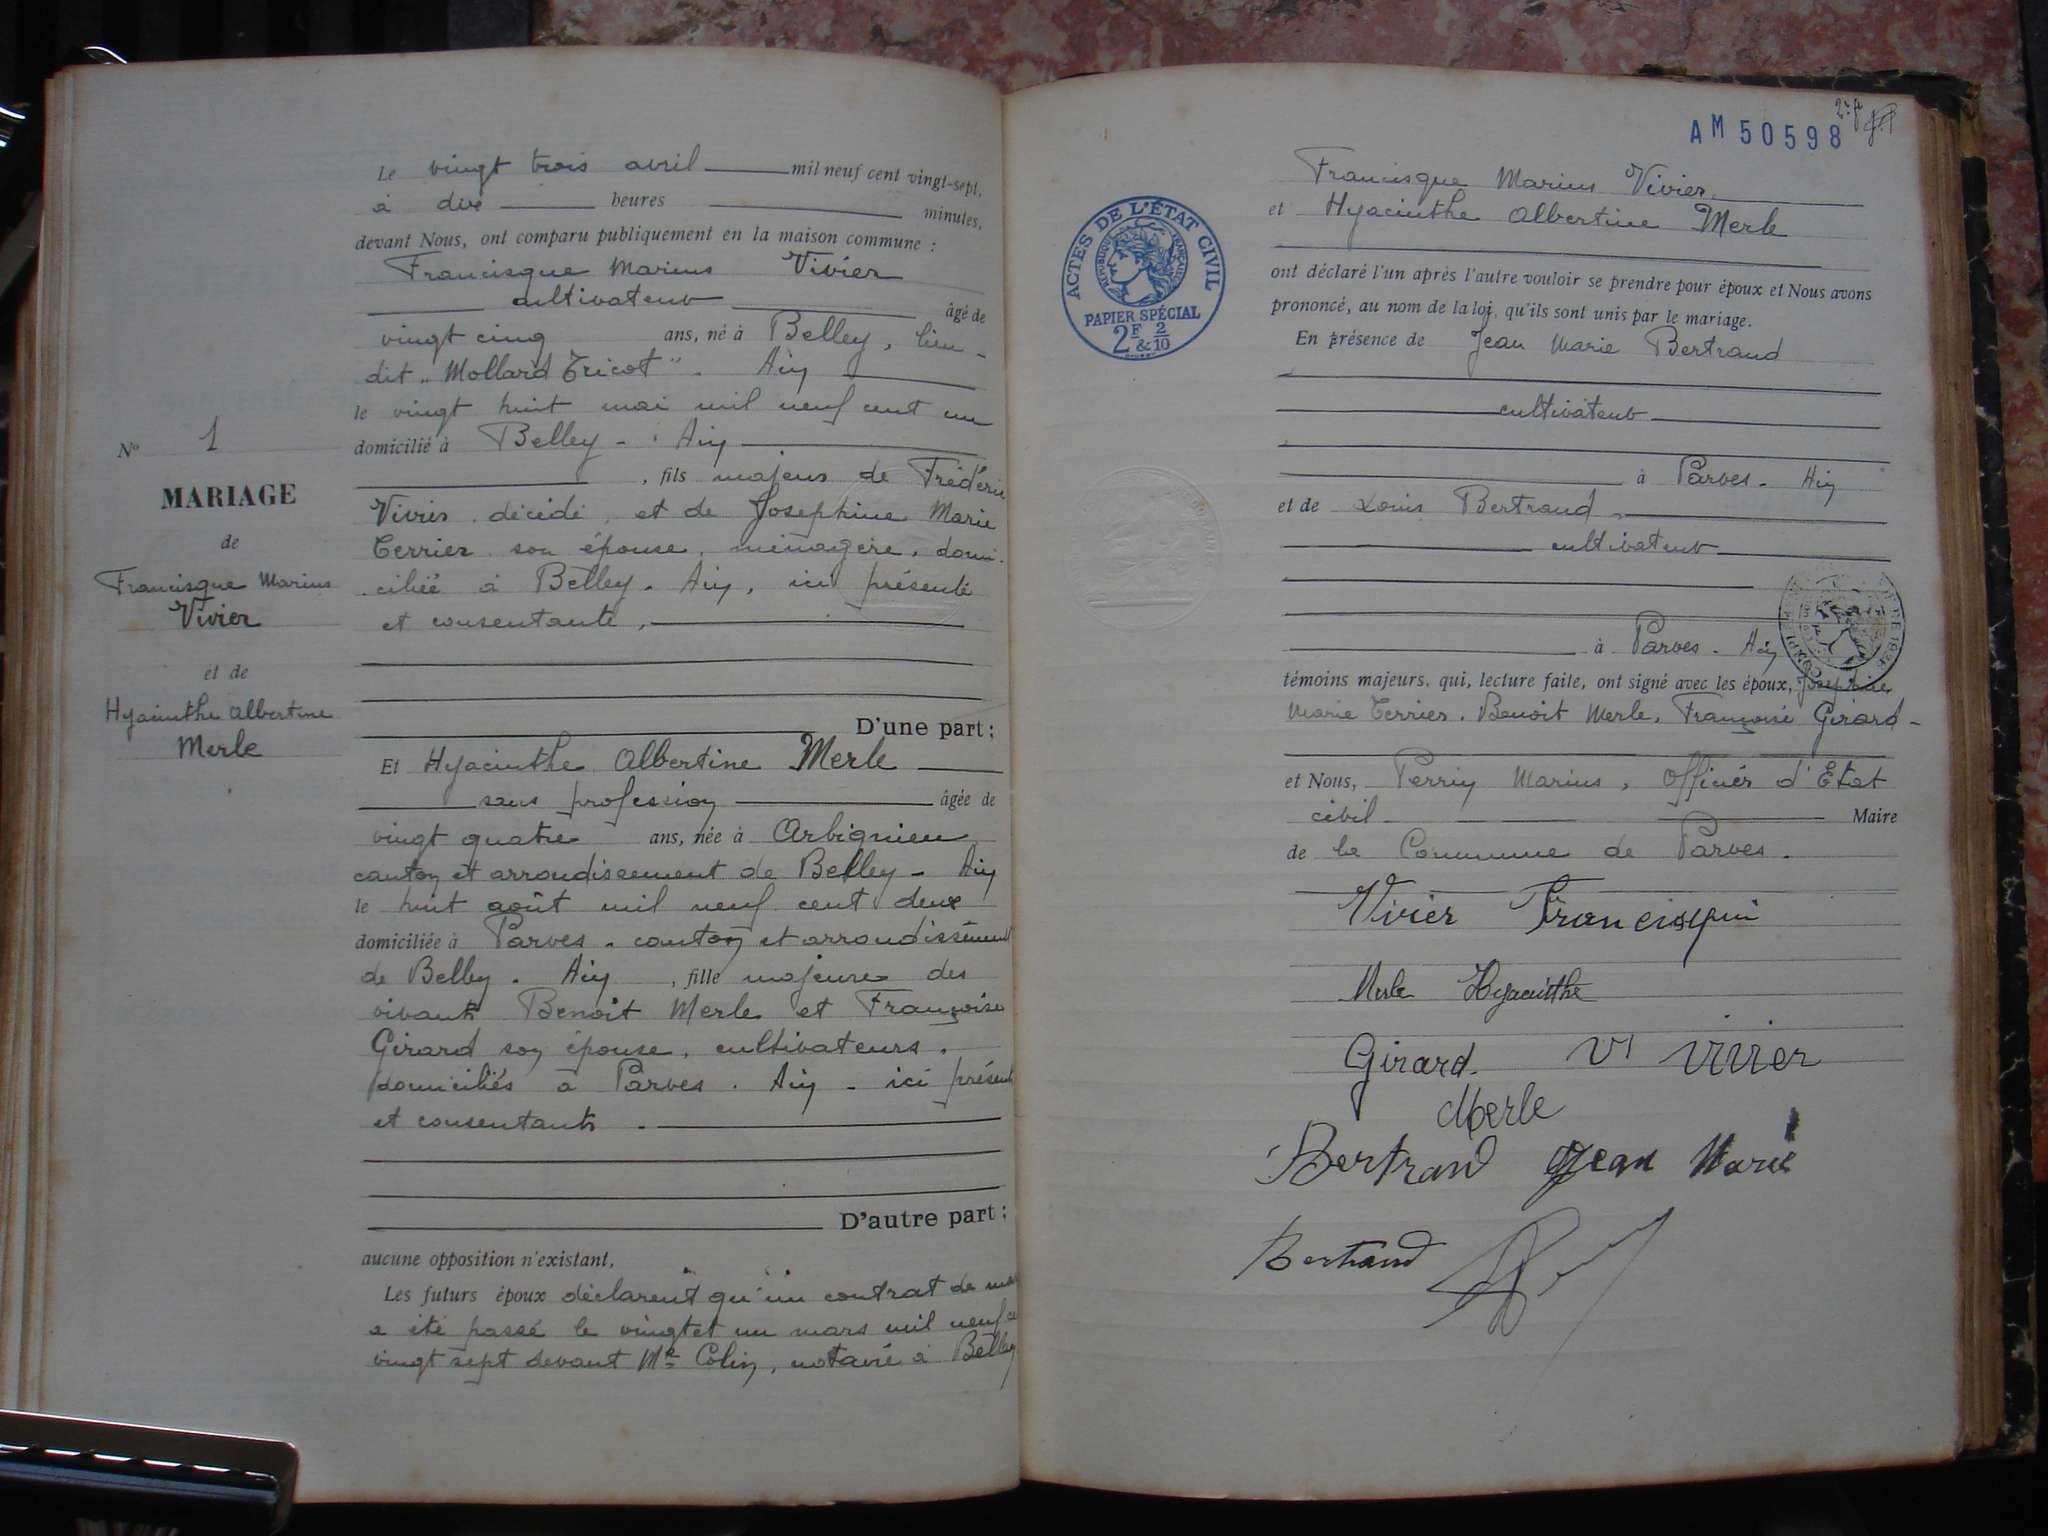 Le vingt trois avril mil neuf cent vingt-sept,
à dix heures minutes,
devant Nous, ont comparu publiquement en la maison commune :
Francisque Marius Vivier
cultivateur âgé de
vingt cinq ans, né à Belley, lieu-
dit "Mollard Tricot". Ain
le vingt huit mai mil neuf cent un
domicilié à Belley - Ain
, fils majeur de Frédéric
Vivier, décédé, et de Josephine Marie
Terrier son épouse, ménagère, domi-
ciliée à Belley. Ain, ici présente
et consentante,
D'une part :
N° 1
MARIAGE
de
Francisque Marius
Vivier
et de
Hyacinthe Albertine
Merle
Et Hyacinthe Albertine Merle
sans profession âgée de
vingt quatre ans, née à Arbignieu
canton et arrondissement de Belley - Ain
le huit août mil neuf cent deux
domiciliée à Parves - canton et arrondissement
de Belley. Ain, fille majeure des
vivants Benoit Merle et Françoise
Girard son épouse, cultivateurs,
domiciliés à Parves. Ain - ici présents
et consentants.
D'autre part :
aucune opposition n'existant,
Les futurs époux déclarent qu'un contrat de
a été passé le vingt et un mars mil neuf
vingt sept devant Me Colin, notaire à Belley
AM 50598
ACTES DE L'ÉTAT CIVIL
RÉPUBLIQUE FRANÇAISE
PAPIER SPÉCIAL
2F & 2/10
Francisque Marius Vivier
et Hyacinthe Albertine Merle
ont déclaré l'un après l'autre vouloir se prendre pour époux et Nous avons
prononcé, au nom de la loi, qu'ils sont unis par le mariage.
En présence de Jean Marie Bertrand
cultivateur
à Parves - Ain
et de Louis Bertrand
cultivateur
à Parves - Ain
témoins majeurs, qui, lecture faite, ont signé avec les époux, Josephine
Marie Terrier, Benoit Merle, Françoise Girard -
et Nous, Perrin Marius, Officier d'Etat
civil Maire
de la Commune de Parves.
Vivier Francisque
Merle Hyacinthe
Girard Vve Vivier
Merle
Bertrand Jean Marie
Bertrand